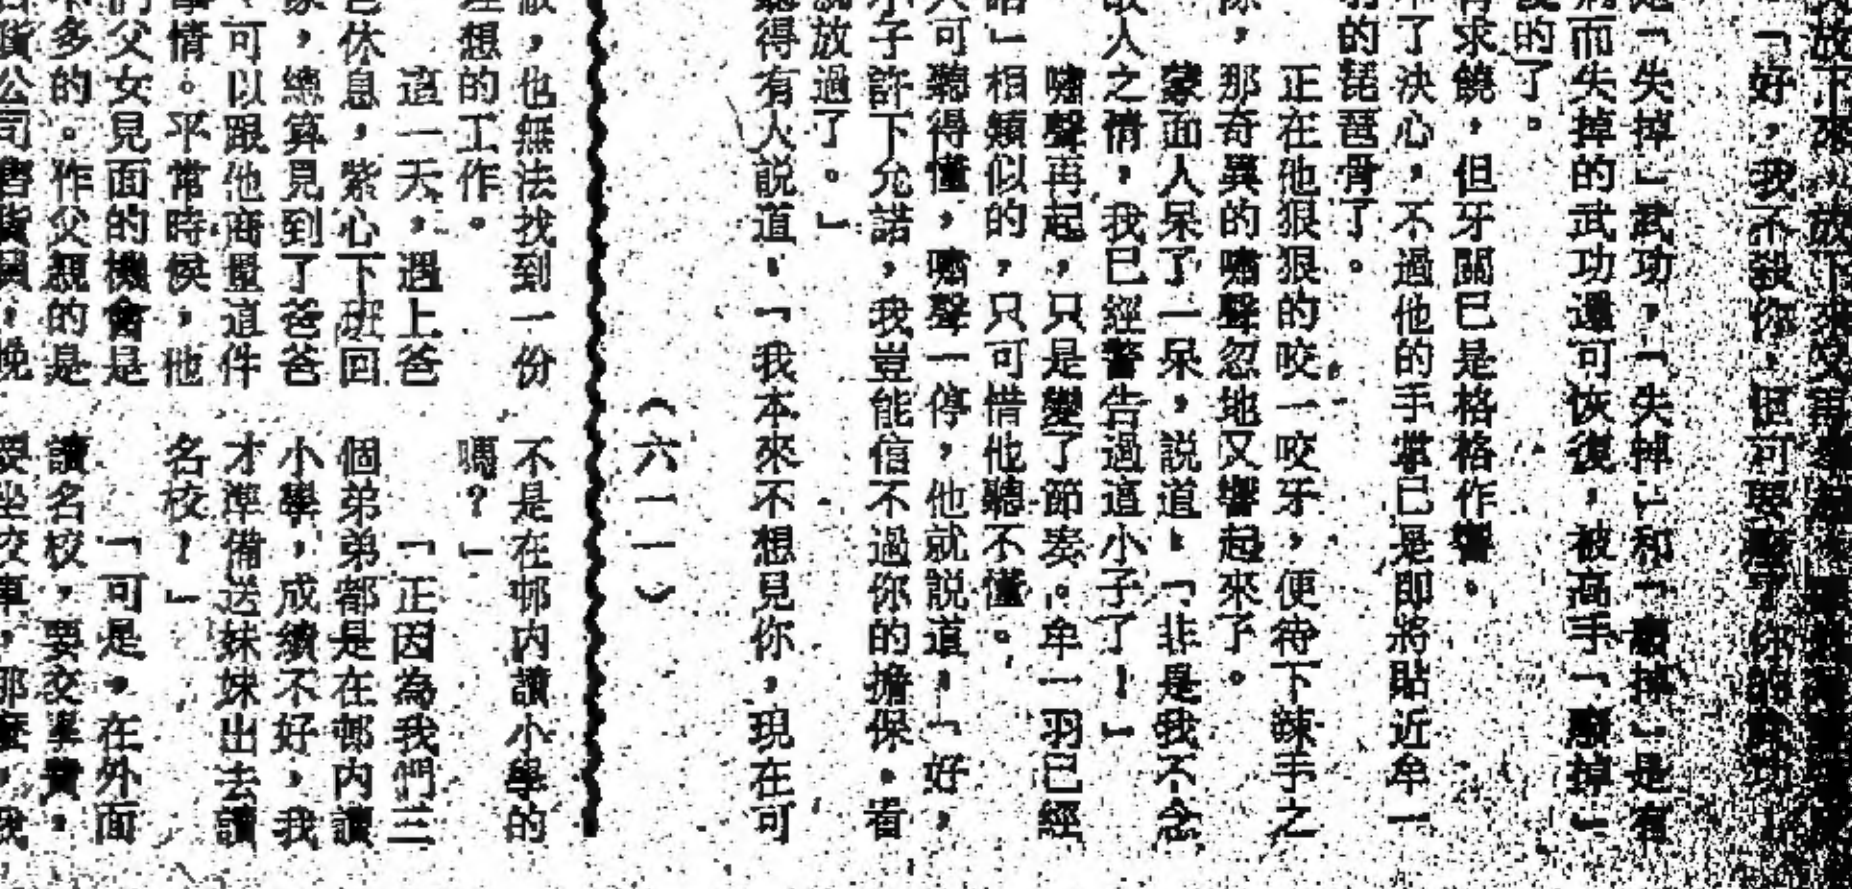 「好，我不殺你，但可要廢了你的武功！
「失掉」武功，「失掉」和「廢掉」是有
而失掉的武功還可恢復，被高手「廢掉」
的了。
求饒，但牙關已是格格作響。
了決心，不過他的手掌已是即將貼近牟一
的琵琶骨了。
正在他狠狠的咬一咬牙，便待下辣手之
，那奇異的嘯聲忽地又響起來了。
蒙面人呆了一呆，說道，「非是我不念
人之情，我已經警告過這小子了！」
嘯聲再起，只是變了節奏。牟一羽已經
」相類似的，只可惜他聽不懂。
可聽得懂，嘯聲一停，他就說道，「好，
子許下允諾，我豈能信不過你的擔保。看
放過了。」
得有人說道，「我本來不想見你，現在可
（六一一）
，也無法找到一份
想的工作。
這一天，遇上爸
休息，紫心下班回
，總算見到了爸爸
可以跟他商量這件
情。平常時候，他
父女見面的機會是
多的。作父親的是
貨公司售貨員，晚
不是在邨內讀小學的
嗎？」
「正因為我們三
個弟弟都是在邨內讀
小學，成績不好，我
才準備送妹妹出去讀
名校！」
「可是，在外面
讀名校，要交學費，
要坐校車，那麼，我